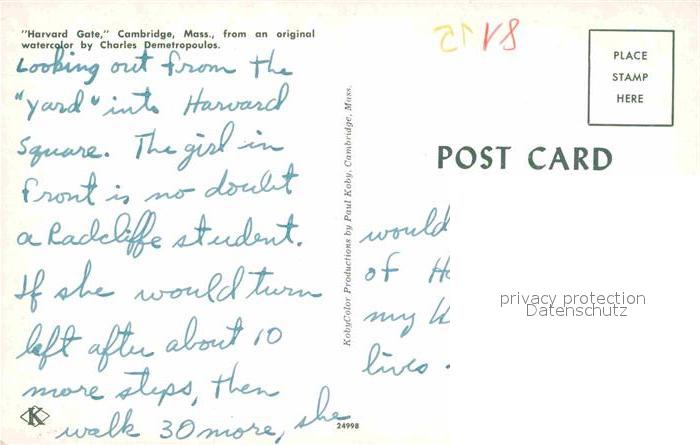 "Harvard Gate," Cambridge, Mass., from an original
watercolor by Charles Demetropoulos.
Looking out from the
"yard" into Harvard
Square. The girl in
front is no doubt
a Radcliffe student.
If she would turn
left after about 10
more steps, then
walk 30 more, she
K
24998
KobyColor Productions by Paul Koby, Cambridge, Mass.
V8
PLACE
STAMP
HERE
POST CARD
would
of
my
lives.
privacy protection
Datenschutz